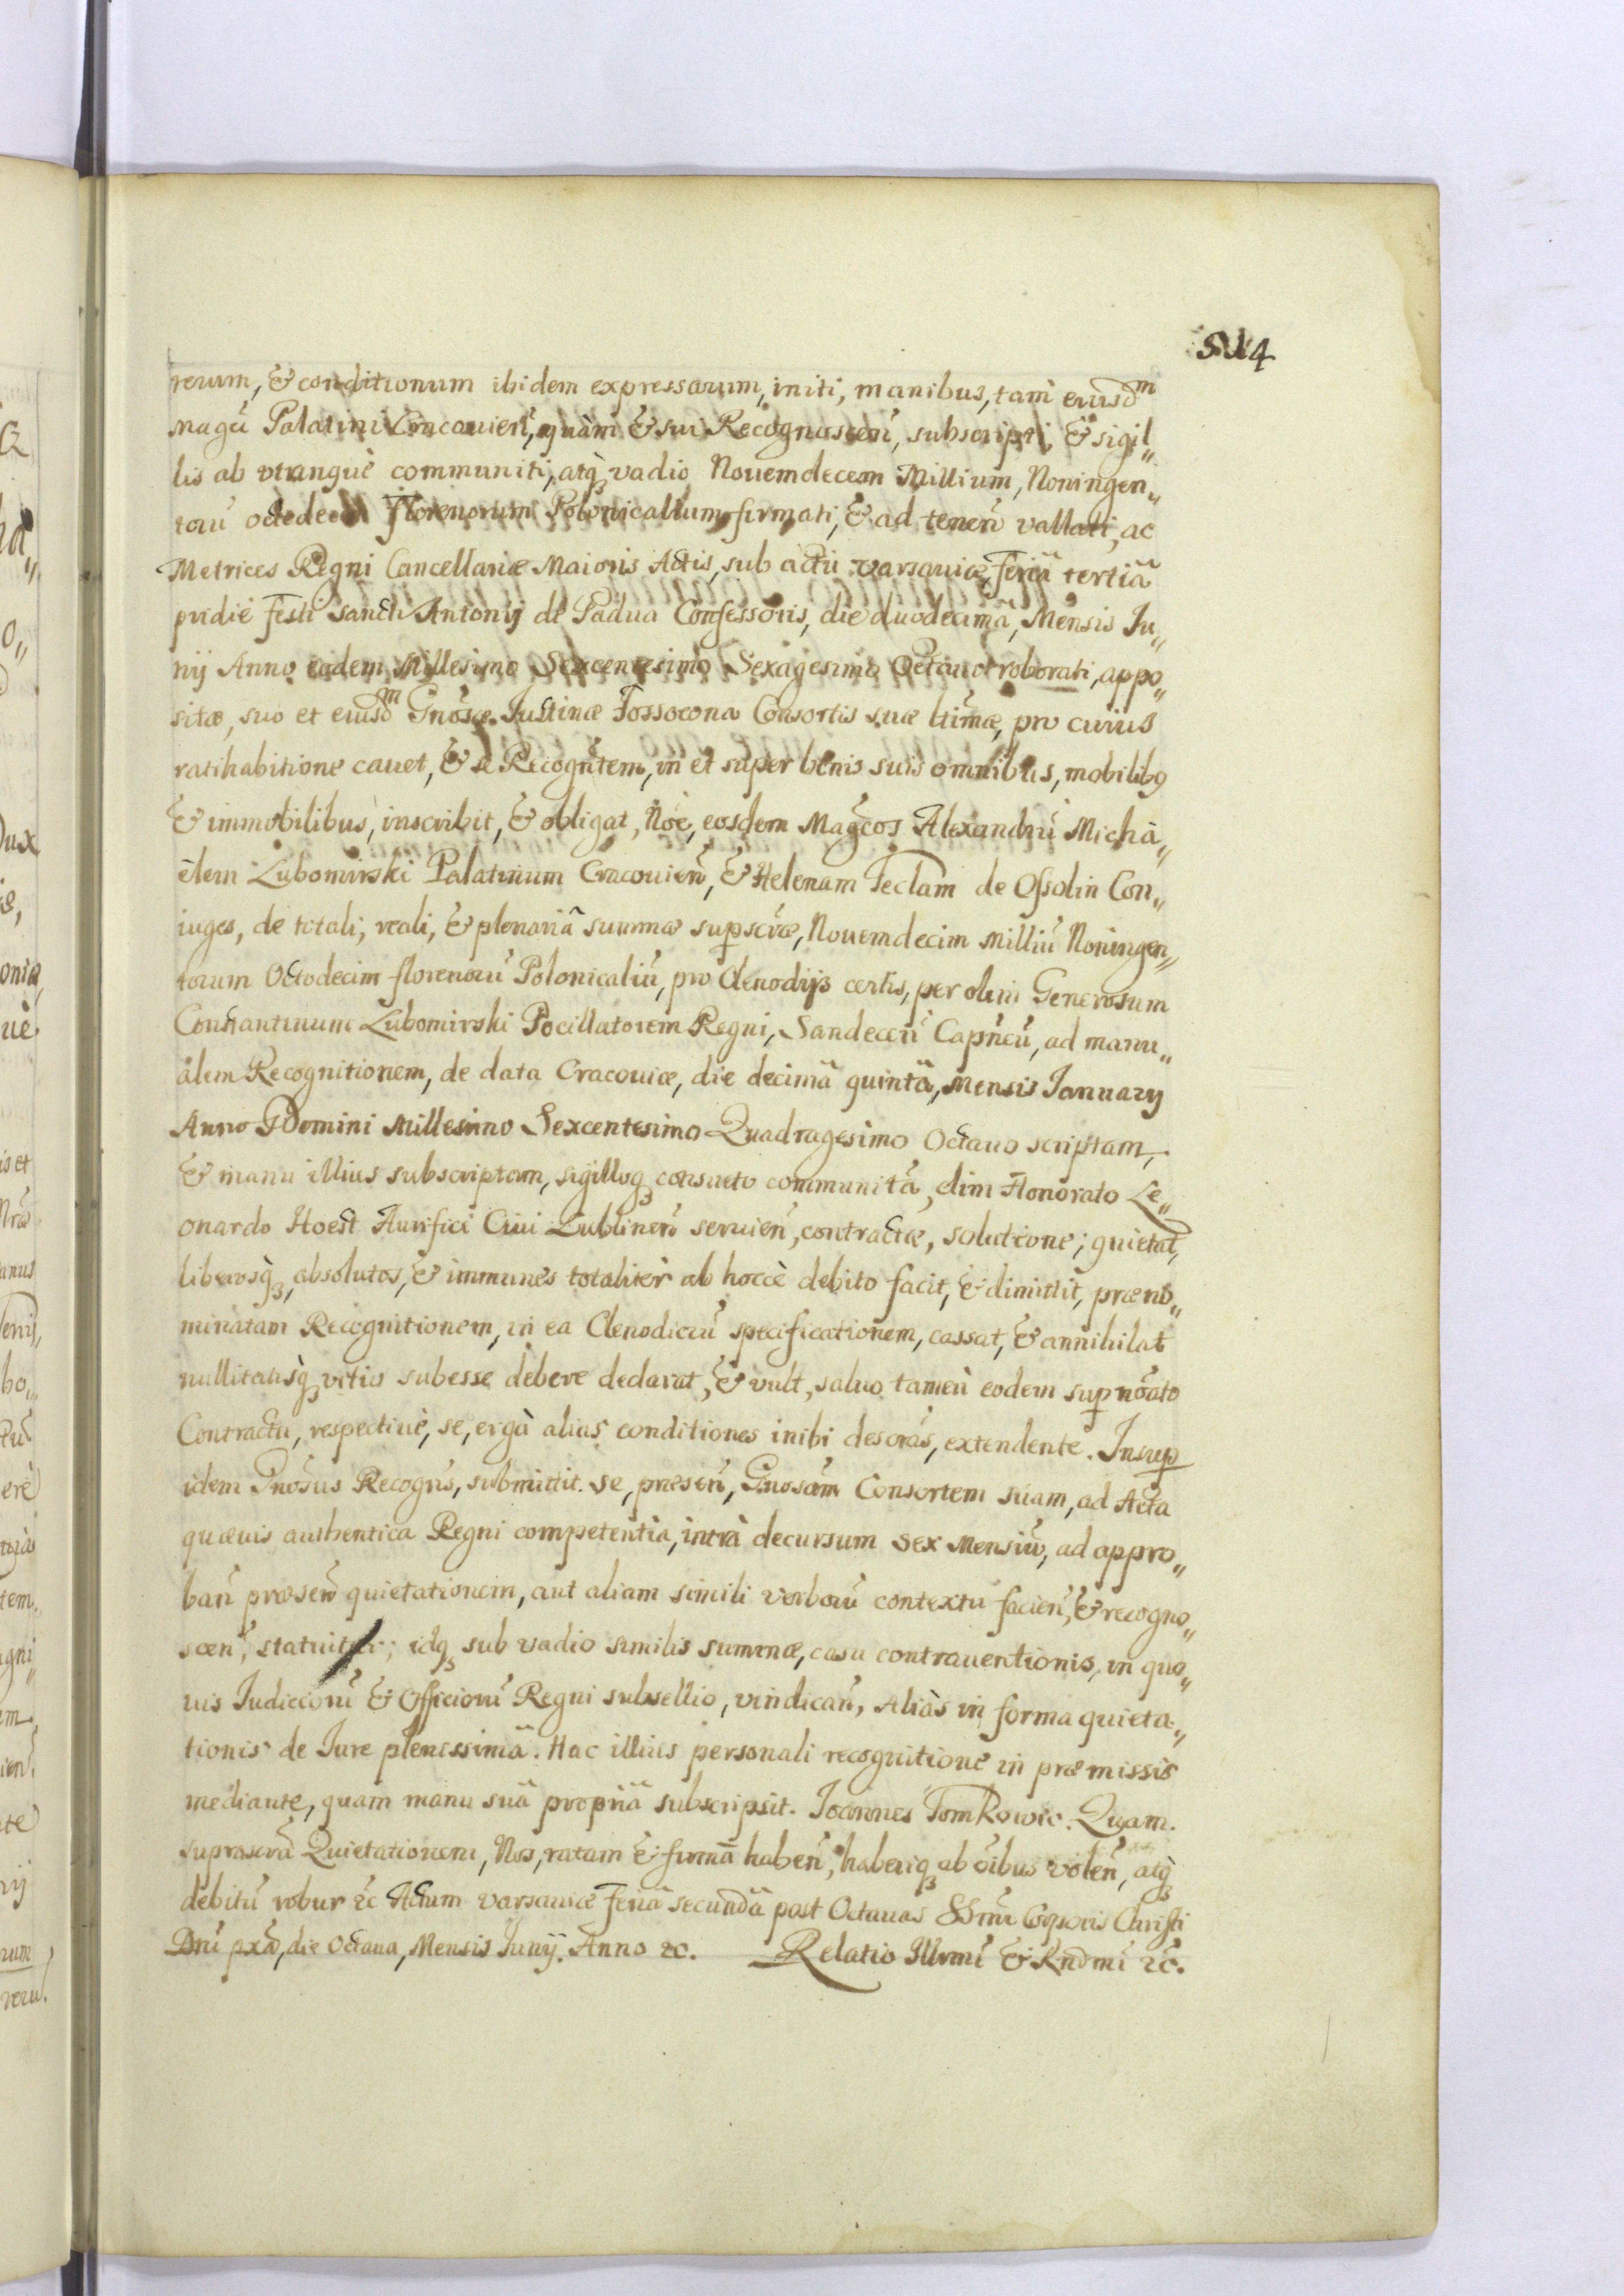 514
rerum, & conditionum ibidem expressarum, initi, manibus, tam eiusd͠m
Magci Palatini Cracouien̄, quàm & sui Recognoscen̄, subscripti, & sigil„
lis ab vtrangue communiti, atq; vadio Nouemdecem Millium, Noningen„
toru̅ octodecem Florenorum Polonicalium, firmati, & ad tenen̄ vallati, ac
Metrices Regni Cancellariæ Maioris Actis, sub actu Varsauiæ, Feriâ tertiâ
pridie Festi Sancti Antonij de Padua Confessoris, die duodecimâ, Mensis Ju„
nij Anno eodem Millesimo Sexcentesimo Sexagesimo Octauo roborati, appo„
sitæ, suo et eiusd͠m Gnosæ Justinæ Consortis suæ ltimæ, pro cuius
ratihabitione cauet, & se Recogn̄tem, in et super bonis suis omnibus, mobilibq
& immobilibus, inscribit, & obligat, Noe, eosdem Magcos Alexandrū Micha„
ëlem Lubomirski Palatinum Cracouien̄, & Helenam Teclam de Ossolin Con„
iuges, de totali, reali, & plenariâ summa supscræ, Nouemdecim Milliū Noningen„
torum Octodecim florenorū Polonicaliū, pro Clenodijs certis, per olim Generosum
Constantinum Lubomirski Pocillatorem Regni, Sandecen̄ Capn̄eū, ad manu„
âlem Recognitionem, de data Cracouiæ, die decimâ quintâ, Mensis January
Anno Domini Millesimo Sexcentesimo Quadragesimo Octauo scriptam,
& manu illius subscriptam, sigilloq; consueto communitâ, olim Honorato Le„
onardo Hoest Aurifici Ciui Lublinen̄ seruien̄, contractæ, solutione; quietat,
liberosq; absolutos, & immunes totaliter ab hocce debito facit, & dimittit, præno„
minatam Recognitionem, in ea Clenodiorū specificationem, cassat, & annihilat
nullitatisq; vitio subesse debere declarat, & vult, saluo tamen eodem supnoato
Contractu, respectiuè, se, ergà alias conditiones inibi descrás, extendente. Insup
idem Gnosus Recogns, submittit se, præsen̄, Gnosam Consortem suam, ad Acta
quæuis authentica Regni competentia, intrà decursum sex Mensiū, ad appro„
ban̄ præsen̄ quietationem, aut aliam simili verborū contextu facien̄, & recogno„
scen̄, statuit; idq; sub vadio similis summæ, casu contrauentionis, in quo„
uis Judiciorū & Officiorū Regni subsellio, vindican̄, Aliàs in forma quieta„
tionis de Jure plenissimâ. Hac illius personali recognitione in præmissis
mediante, quam manu suâ propriâ subscripsit. Joannes Tomkowic. Quam
suprascrâ Quietationem, Nos, ratam & firmâ haben̄, haberiq; ab oibus volen̄, atq;
debitū robur &c Actum Varsauiæ Feriâ secundâ post Octauas SSmi Corporis Christi
Dni pxâ, die Octaua, Mensis Junij. Anno &c. Relatio Illrmi & Rndmi &c.